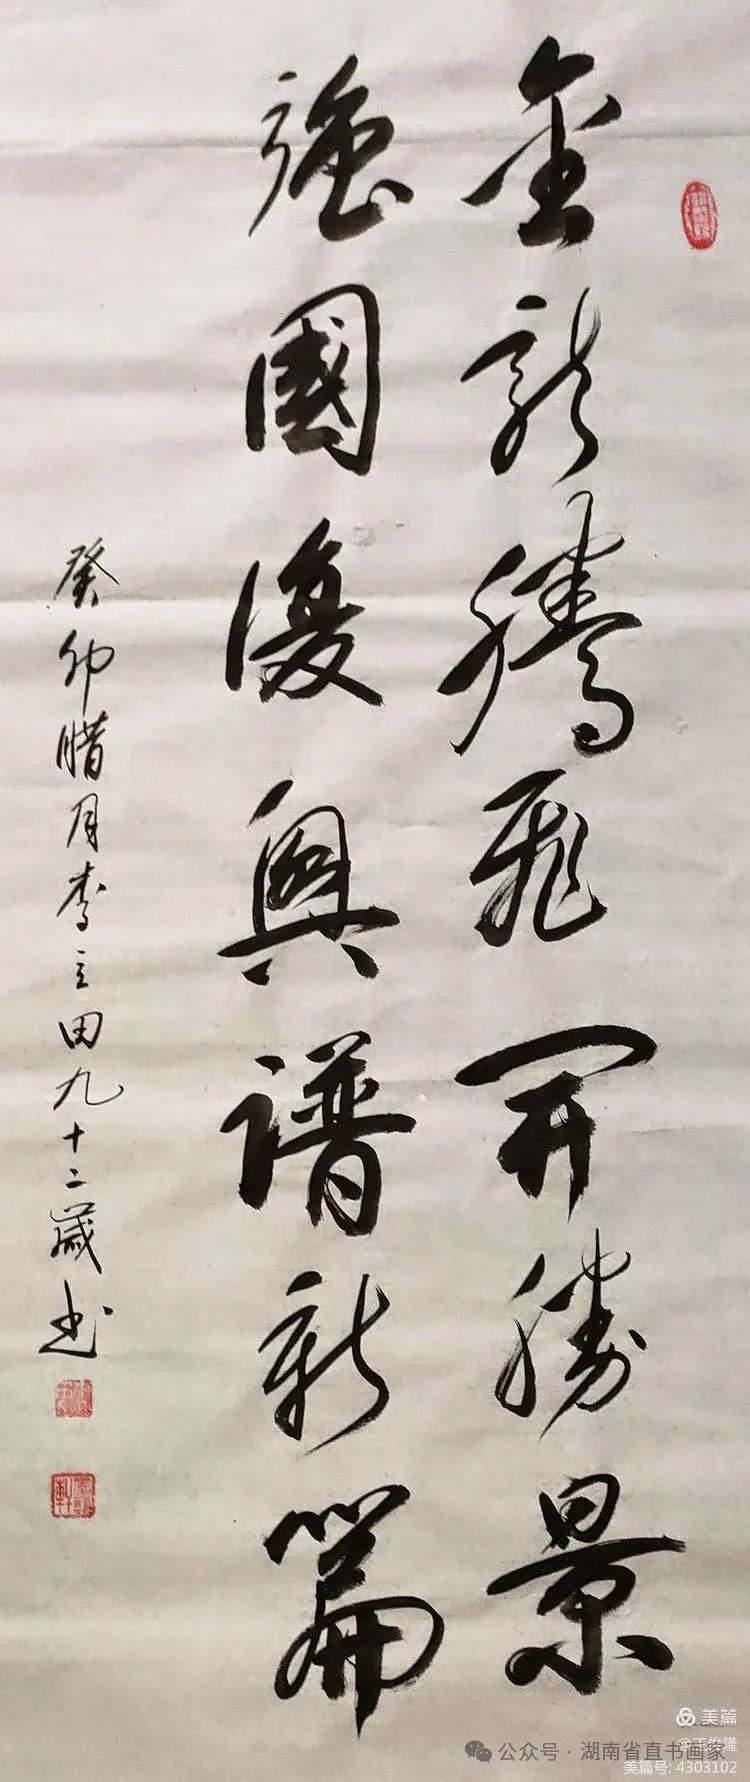 金龍騰飛開勝景
強國復興譜新篇
癸卯腊月李立田九十二歲书
美篇
@王俊隆
公众号·湖南省直书画家
美篇号: 4303102